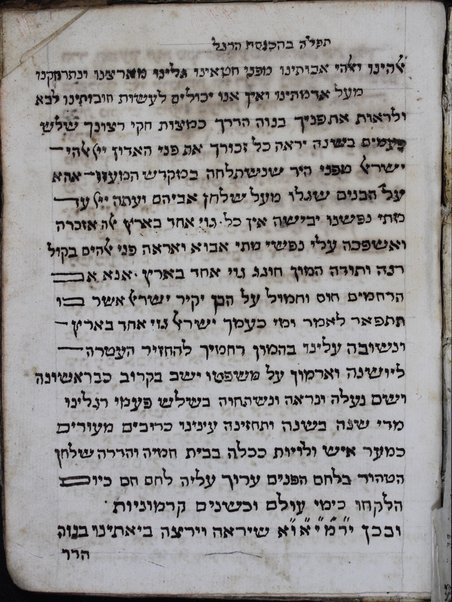 תפילה בהכנסת הרגל
אלהינו ואלהי אבותינו מפני חטאינו גלינו מארצנו ונתרחקנו
מעל אדמתינו ואין אנו יכולים לעשות חובותינו לבא
ולראות את פניך בנוה הדרך כמצות חקי רצונך שלש
פעמים בשנה יראה כל זכורך את פני האדון ייי אלהי
ישראל מפני היד שנשתלחה במקדש המעוז אהא
על הבנים שגלו מעל שלחן אביהם ועתה ייי עד
מתי נפשנו יבישה אין כל גוי אחד בארץ אלה אזכרה
ואשפכה עלי נפשי מתי אבוא ואראה פני אלהים בקול
רנה ותודה המון חוגג גוי אחד בארץ אנא אב
הרחמים חוס וחמול על הבן יקיר ישראל אשר בו
תתפאר לאמר ומי כעמך ישראל גוי אחד בארץ
ונשובה עלינו בהמון רחמיך להחזיר העטרה
ליושנה וארמון על משפטו ישב בקרוב כבראשונה
ושם נעלה ונראה ונשתחוה בשלש פעמי רגלינו
מדי שנה בשנה ותחזינה עינינו כרובים מעורים
כמער איש ולויות ככלה בבית חמיה והדרה שלחן
הטהור בלחם הפנים ערוך עליה לחם חם כיום
הלקחו כימי עולם וכשנים קדמוניות
ובכן יר״מ״י״א״ו״א שיראה וירצה ביאתינו בנוה
הדר